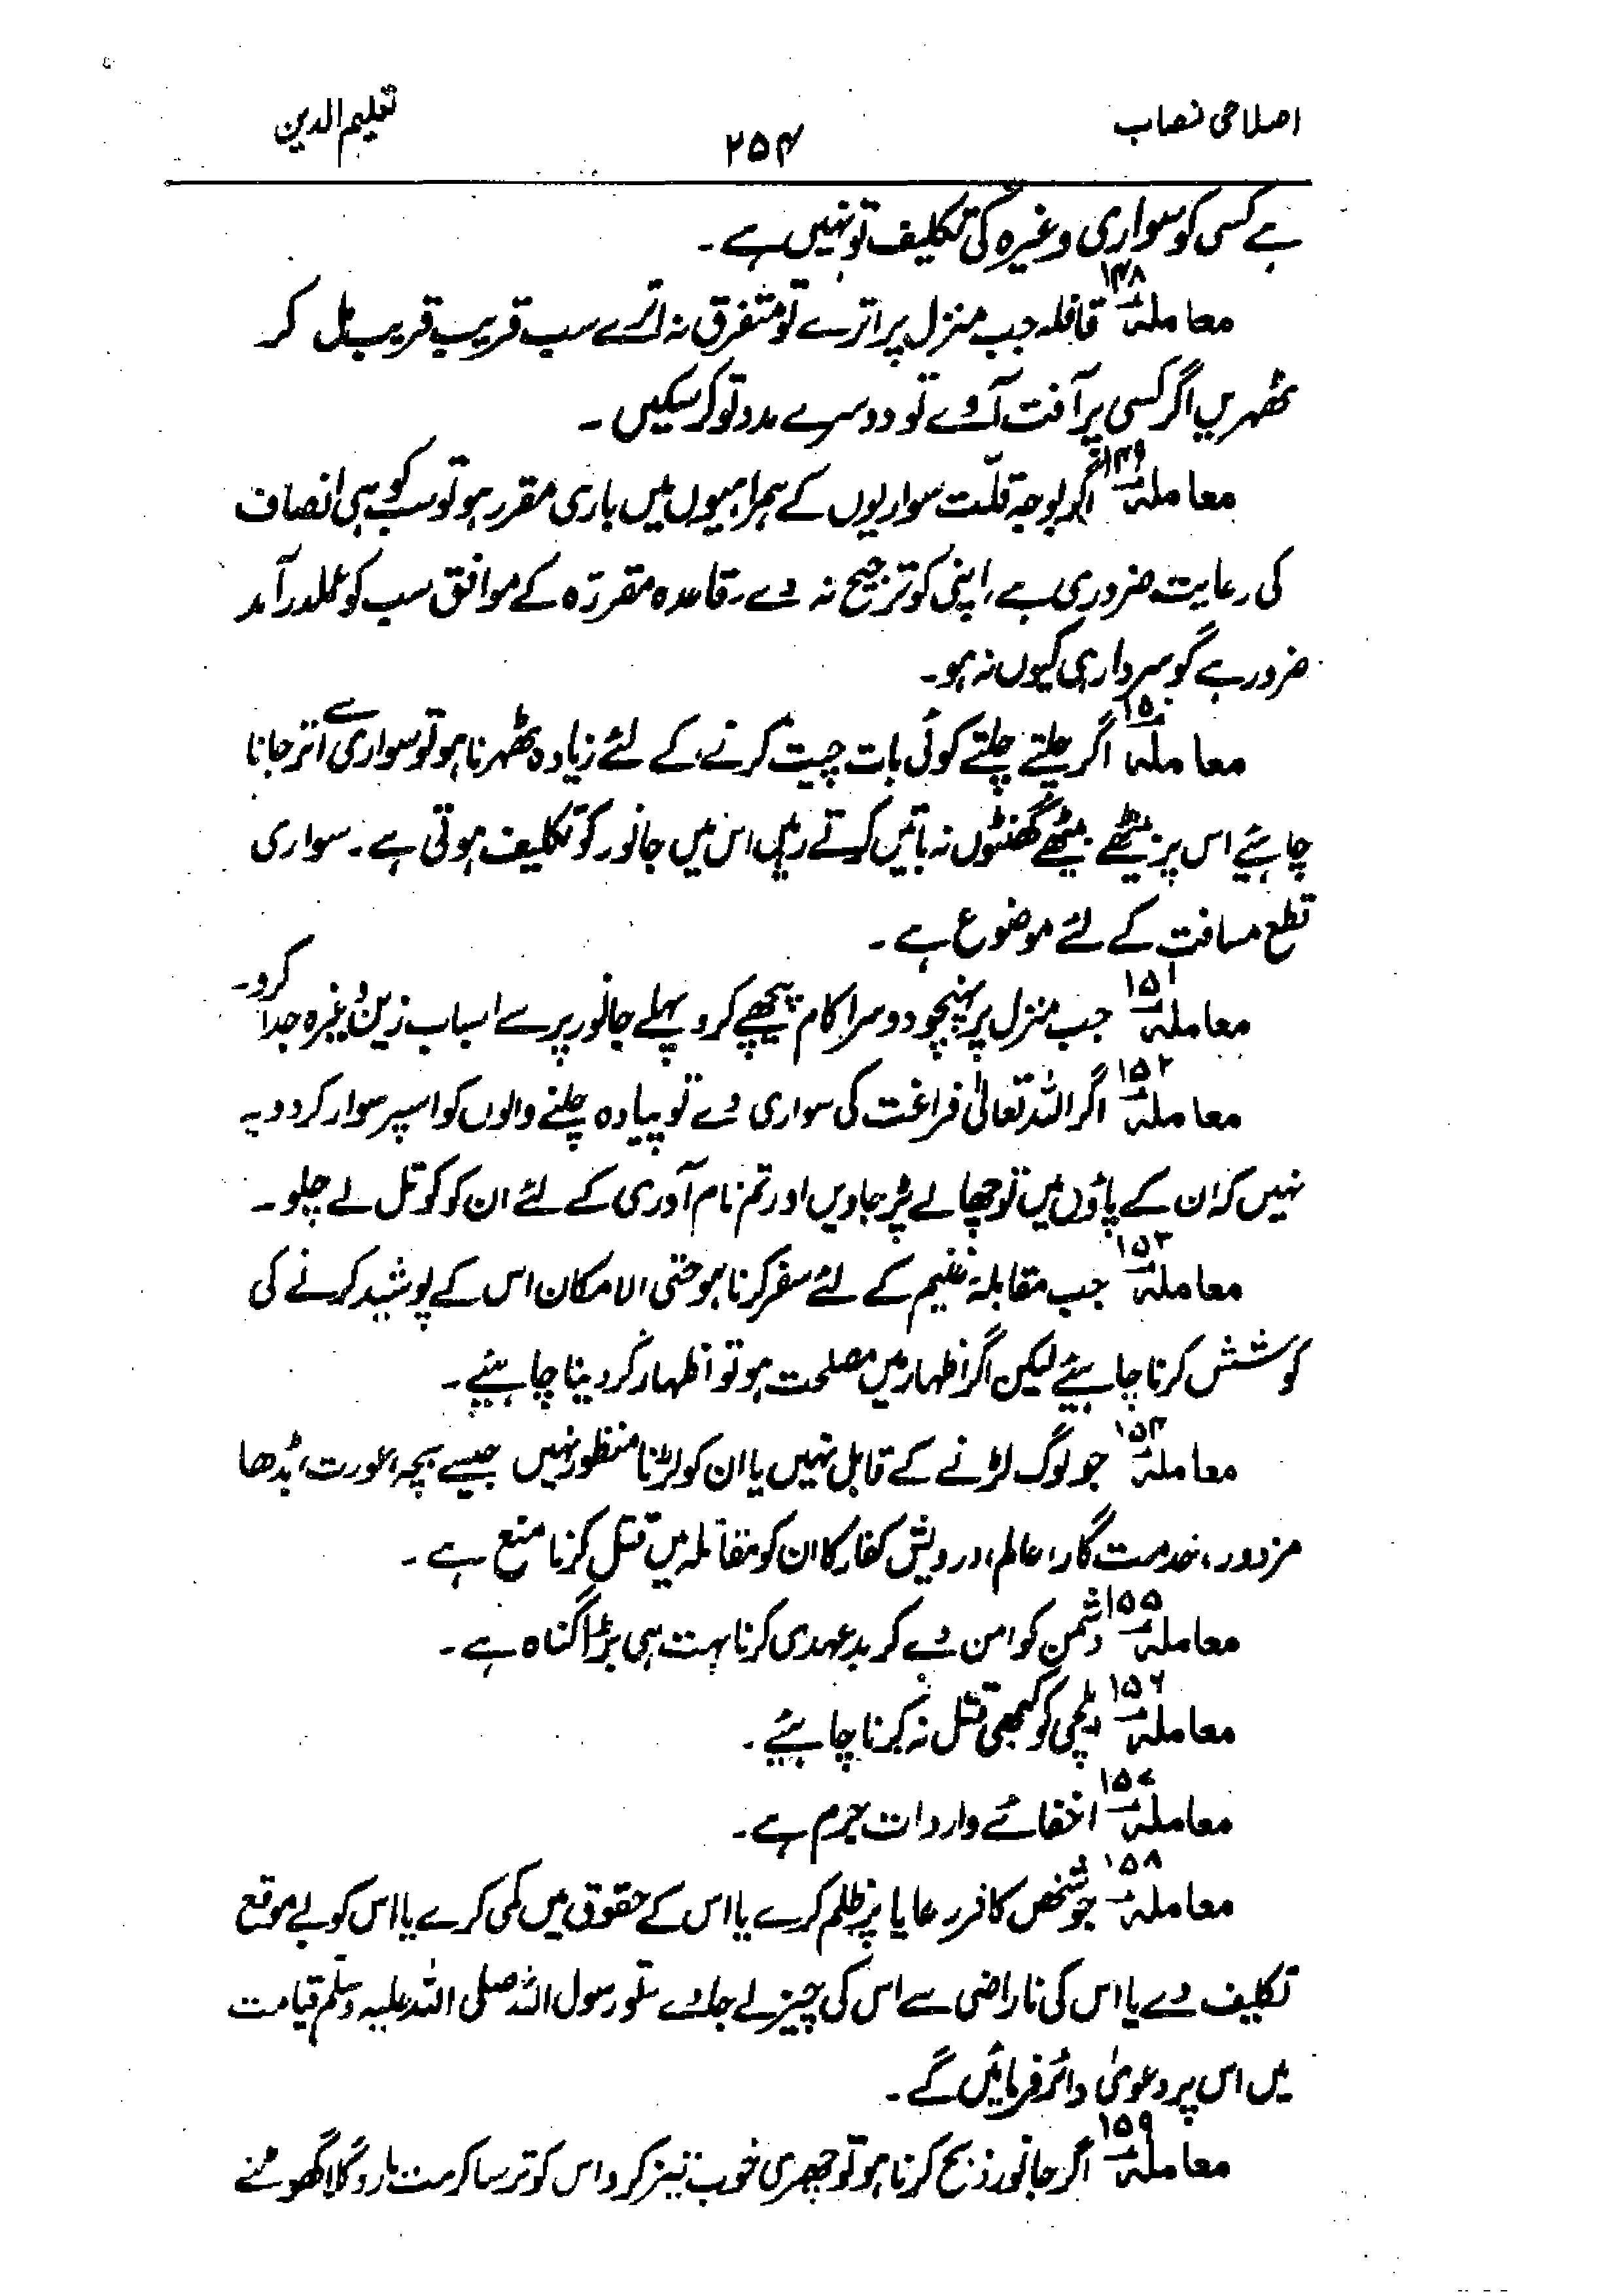 اصلاحی نصاب
۲۵۴
تعلیم الدین
ہے کسی کو سواری وغیرہ کی تکلیف تو نہیں ہے۔
معاملہ ۱۴۸ قافلہ جب منزل پر اترے تو متفرق نہ اترے سب قریب قریب مل کر
ٹھہریں اگر کسی پر آفت آوے تو دوسرے مدد تو کر سکیں۔
معاملہ ۱۴۹ اگر بوجہ قلّت سواریوں کے ہمراہیوں میں باری مقرر ہو تو سب کو ہی انصاف
کی رعایت ضروری ہے، اپنی کو ترجیح نہ دے۔ قاعدہ مقررّہ کے موافق سب کو عملدرآمد
ضرور ہے گو سردار ہی کیوں نہ ہو۔
معاملہ ۱۵۰ اگر چلتے چلتے کوئی بات چیت کرنے کے لئے زیادہ ٹھہرنا ہو تو سواری سے اتر جانا
چاہئیے اس پر بیٹھے بیٹھے گھنٹوں نہ باتیں کرتے رہیں اس میں جانور کو تکلیف ہوتی ہے۔ سواری
قطع مسافت کے لئے موضوع ہے۔
معاملہ ۱۵۱ جب منزل پر پہنچو دوسرا کام پیچھے کرو پہلے جانور پر سے اسباب زین وغیرہ جدا کرو۔
معاملہ ۱۵۲ اگر اللہ تعالیٰ فراغت کی سواری دے تو پیادہ چلنے والوں کو اسپر سوار کر دو یہ
نہیں کہ ان کے پاؤں میں تو چھالے پڑ جاویں اور تم نام آوری کے لئے ان کو کوتل لے چلو۔
معاملہ ۱۵۳ جب مقابلۂ غنیم کے لئے سفر کرنا ہو حتی الامکان اس کے پوشید کرنے کی
کوشش کرنا چاہیئے لیکن اگر اظہار میں مصلحت ہو تو اظہار کر دینا چاہیئے۔
معاملہ ۱۵۴ جو لوگ لڑنے کے قابل نہیں یا ان کو لڑنا منظور نہیں جیسے بچہ، عورت، بڈھا
مزدور، خدمت گار، عالم، درویش کفار کا ان کو مقاتلہ میں قتل کرنا منع ہے۔
معاملہ ۱۵۵ دشمن کو امن دے کر بد عہدی کرنا بہت ہی بڑا گناہ ہے۔
معاملہ ۱۵۶ ایلچی کو کبھی قتل نہ کرنا چاہیئے۔
معاملہ ۱۵۷ اخفائے واردات جرم ہے۔
معاملہ ۱۵۸ جو شخص کافر رعایا پر ظلم کرے یا اس کے حقوق میں کمی کرے یا اس کو بے موقع
تکلیف دے یا اس کی ناراضی سے اس کی چیز لے جاوے تو رسول اللہ صلی اللہ علیہ وسلم قیامت
میں اس پر دعویٰ دائر فرمائیں گے۔
معاملہ ۱۵۹ اگر جانور ذبح کرنا ہو تو چھری خوب تیز کرو اس کو ترسا کر مت مارو گلا گھوٹنے